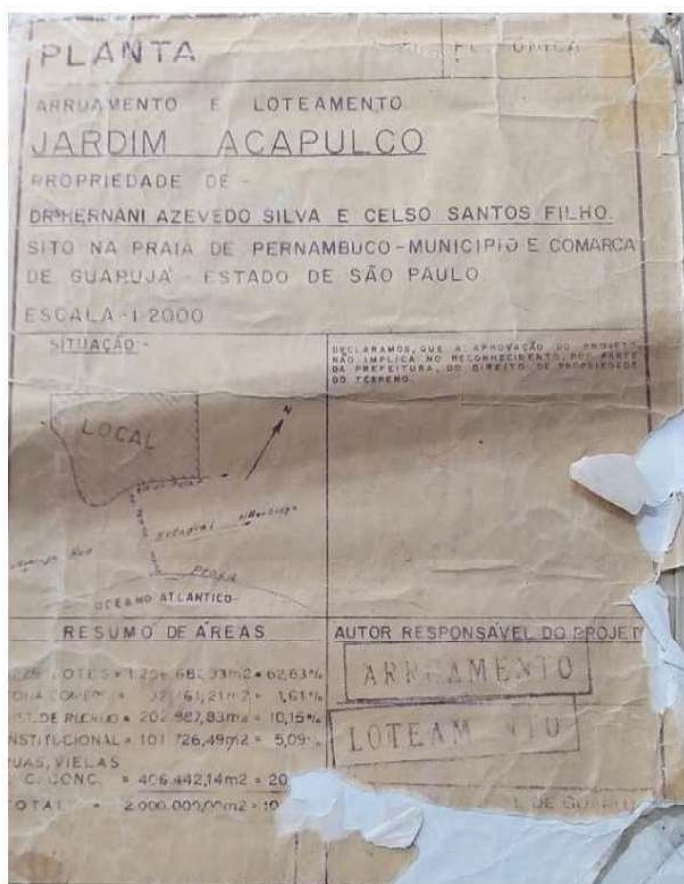 PLANTA
ÚNICA
ARRUAMENTO E LOTEAMENTO
JARDIM ACAPULCO
PROPRIEDADE DE -
DR HERNANI AZEVEDO SILVA E CELSO SANTOS FILHO.
SITO NA PRAIA DE PERNAMBUCO - MUNICIPIO E COMARCA
DE GUARUJÁ - ESTADO DE SÃO PAULO
ESCALA - 1:2000
SITUAÇÃO -
DECLARAMOS, QUE A APROVAÇÃO DO PROJETO
NÃO IMPLICA NO RECONHECIMENTO, POR PARTE
DA PREFEITURA, DO DIREITO DE PROPRIEDADE
DO TERRENO.
LOCAL
N
Praia
OCEANO ATLANTICO
RESUMO DE ÁREAS
LOTES = 62,83%
= 1,61%
= 202.987,83m2 = 10,15%
INSTITUCIONAL = 101.726,49m2 = 5,09
RUAS, VIELAS
C. CONC. = 406.442,14m2 = 20
TOTAL = 2.000.000,00m2 = 10
AUTOR RESPONSÁVEL DO PROJET
ARRUAMENTO
LOTEAM NTO
DE GUARUJ